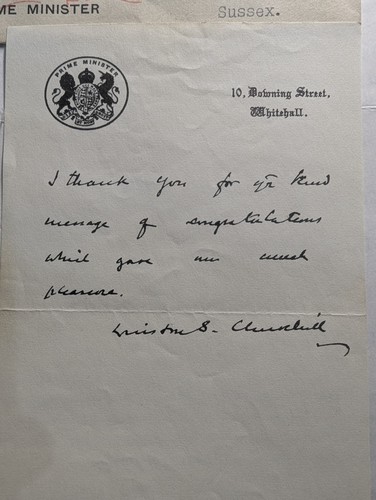 ME MINISTER
Sussex.
PRIME MINISTER
10, Downing Street,
Whitehall.
I thank you for yr kind
message of congratulations
which gave me much
pleasure.
Winston S. Churchill